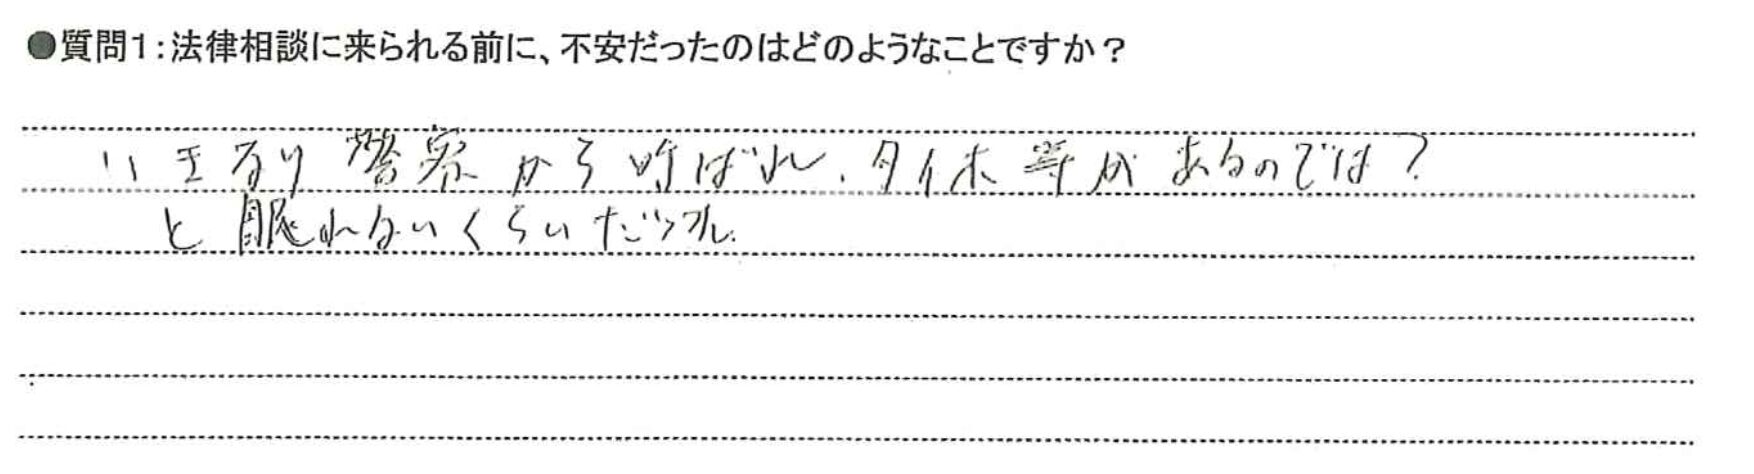 ●質問1:法律相談に来られる前に、不安だったのはどのようなことですか?
いきなり警察から呼ばれ、タイホ等があるのでは?
と眠れないくらいだった。